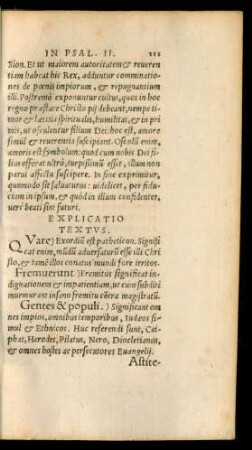 IN PSAL. II.
Sion. Et ut maiorem autoritatem & reueren
tiam habeat hic Rex, adduntur comminatio-
nes de pœnis impiorum, & repugnantium
illi. Postremò exponuntur cultus, quos in hoc
regno præstare Christo pij debeant, nempe ti-
mor & lætitia spiritualis, humilitas, & in pri
mis, ut osculentur filium Dei: hoc est, amore
simul & reuerentia suscipiant. Osculū enim,
amoris est symbolum: quod cum nobis Dei fi-
lius offerat ultrò, turpissimū esset, illum non
pari affectu suscipere. In fine exprimitur,
quomodo sit saluaturus: uidelicet, per fidu-
ciam in ipsum, & quòd in illum confidentes,
uerè beati sint futuri.
EXPLICATIO
TEXTVS.
QVare) Exordiū est patheticon. Signifi
cat enim, mūdū aduersaturū esse illi Chri
sto, & tamē illos conatus mundi fore irritos.
Fremuerunt) Fremitus significat in-
dignationem & impatientiam, ut cum subditi
murmurant insano fremitu cōtra magistratū.
Gentes & populi.) Significant om
nes impios, omnibus temporibus, Iudæos si-
mul & Ethnicos. Huc referendi sunt, Cai-
phas, Herodes, Pilatus, Nero, Diocletianus,
& omnes hostes ac persecutores Euangelij.
Astite-